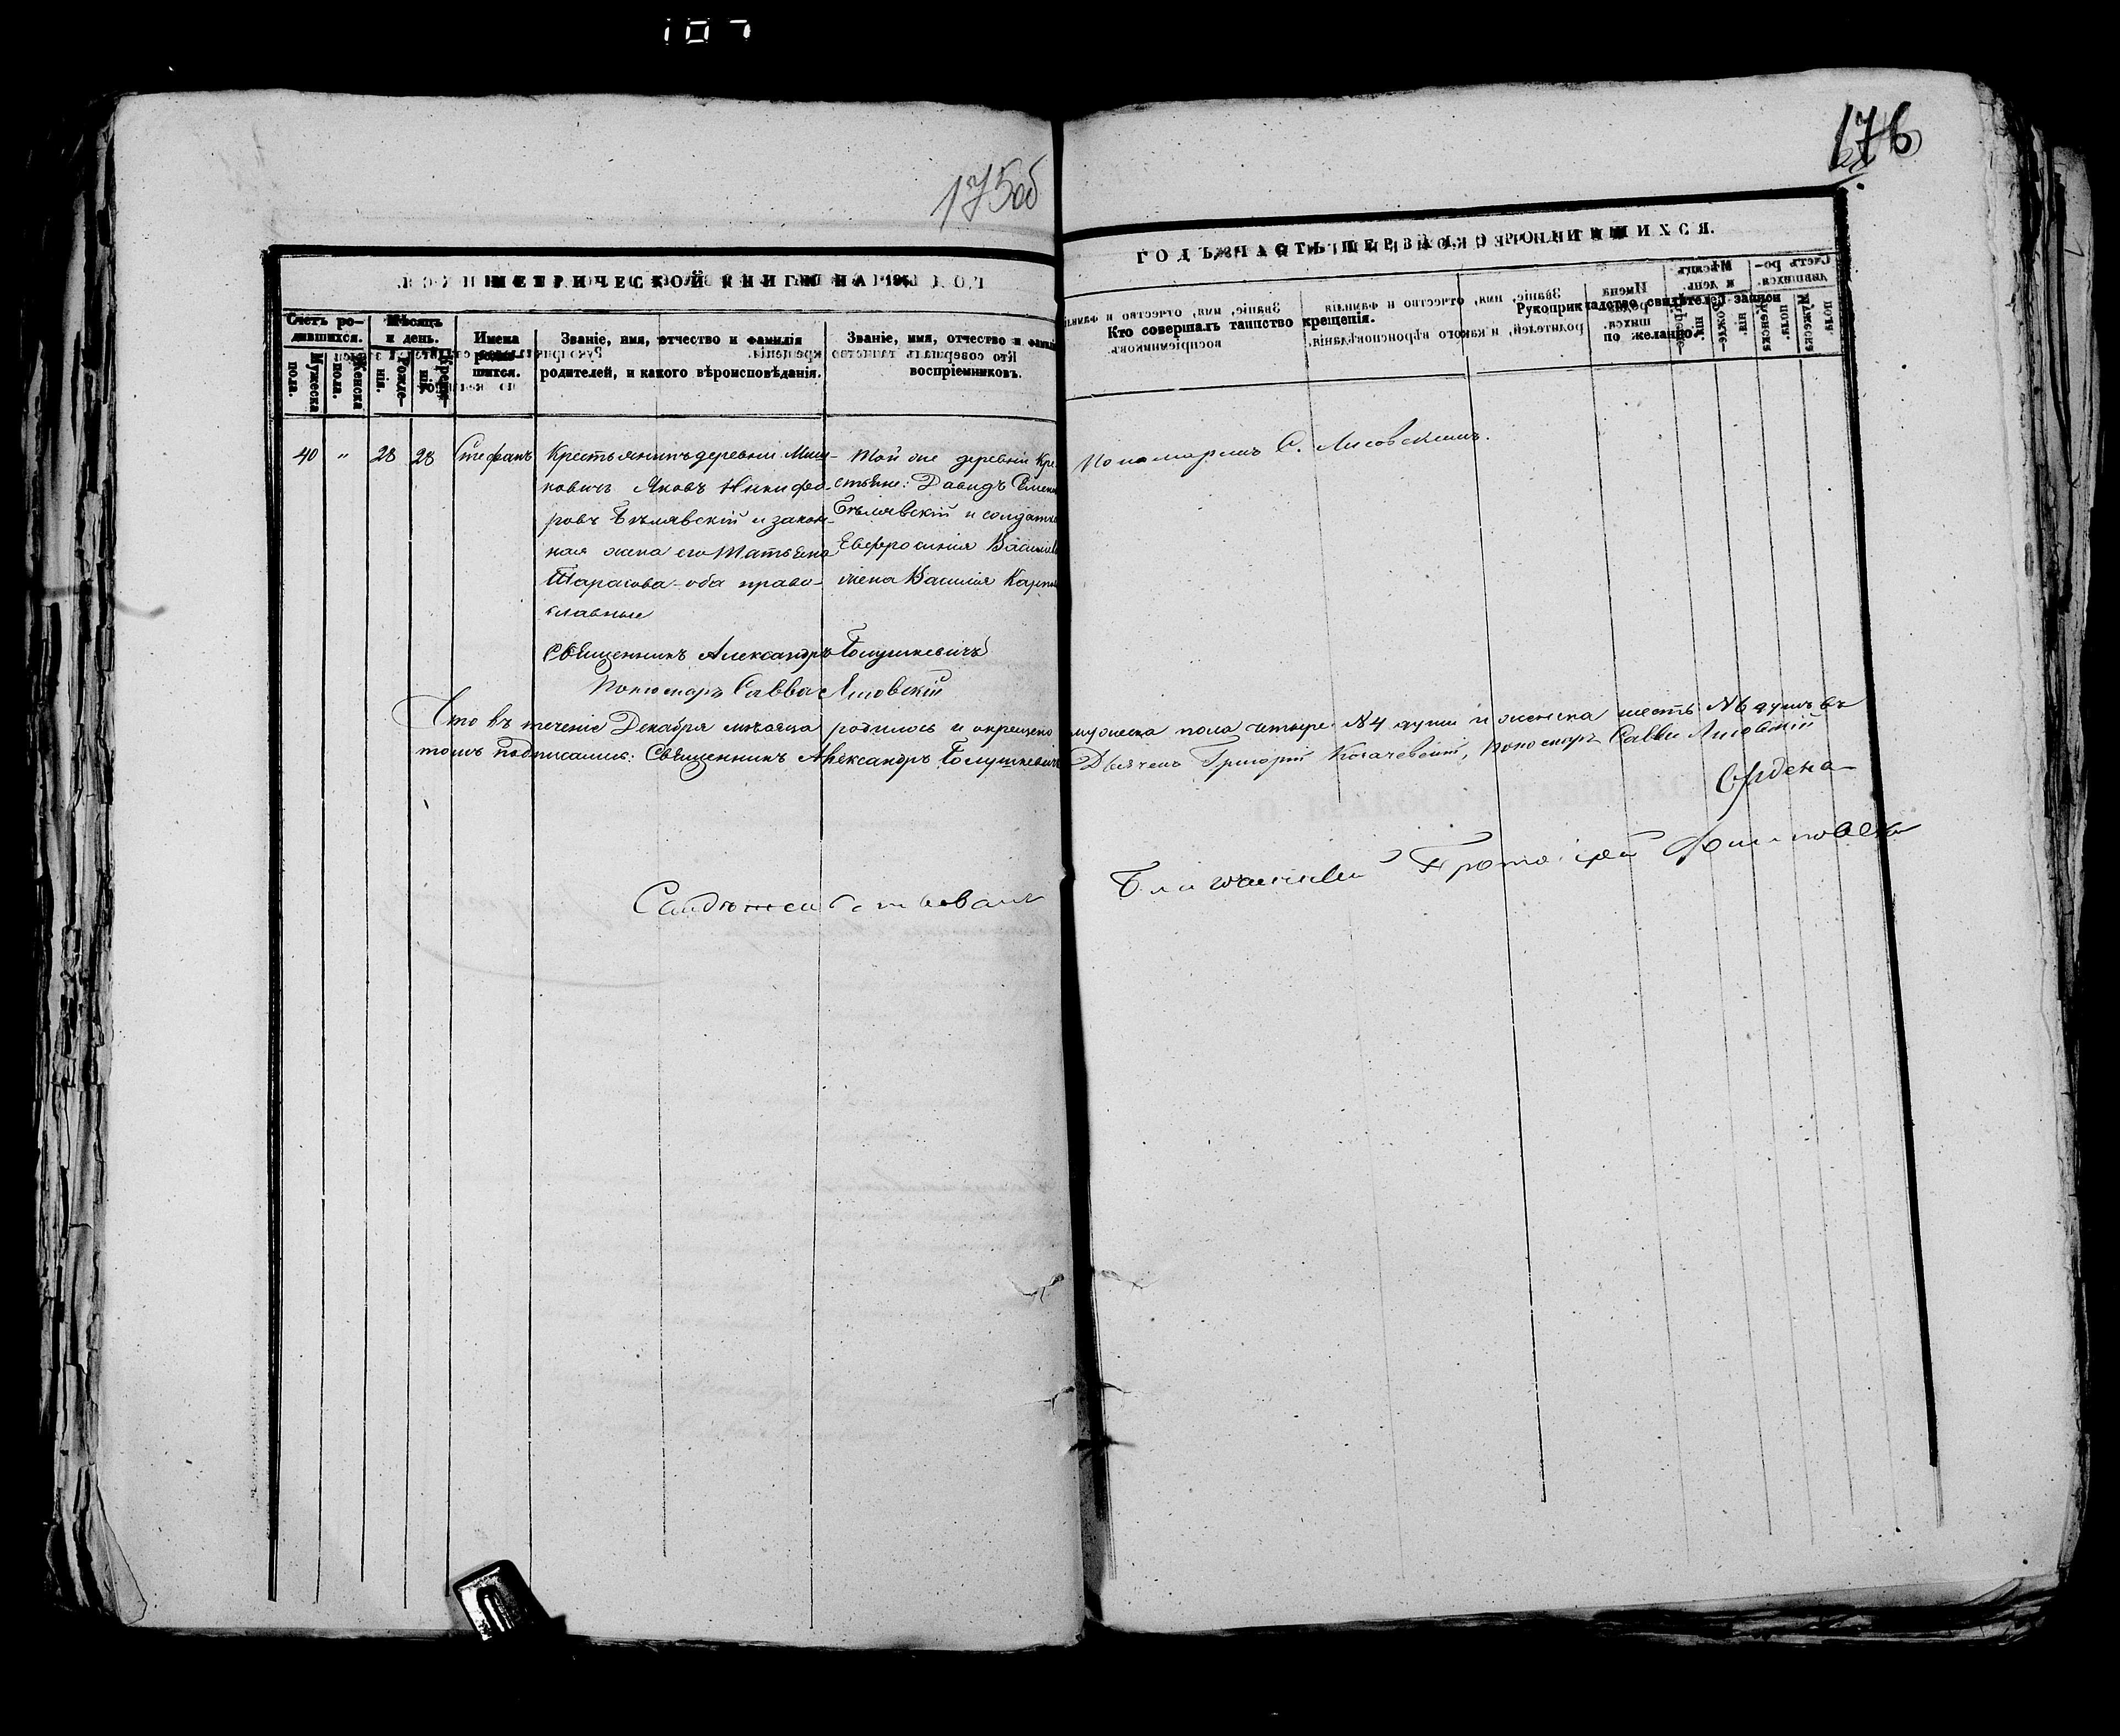 107
175об
176
МЕТРИЧЕСКОЙ КНИГИ НА 18
ГОДЪ, ЧАСТЬ ПЕРВАЯ, О РОДИВШИХСЯ.
Счетъ ро-
дившихся.
Мужеска
пола.
Женска
пола.
Мѣсяцъ
и день.
Рожде-
нія.
Креще-
нія.
Имена
родив-
шихся.
Званіе, имя, отчество и фамилія
родителей, и какого вѣроисповѣданія.
Званіе, имя, отчество и фамилія
воспріемниковъ.
Кто совершалъ таинство крещенія.
Рукоприкладство свидѣтелей записи
по желанію.
40 " 28 28 Стефанъ
Крестьянинъ деревни
Яковъ Никифо-
ровъ Бѣлявскій и закон-
ная жена его Татьяна
Тарасова оба право-
славные
Той же деревни Кре
стьяне: Давидъ
Бѣлявскій и солдатка
Евфросинія
жена Василія
Пономаремъ С. Лисовскимъ.
Священникъ Александръ
Пономарь Савва Лисовскій
Что въ теченіе Декабря мѣсяца родилось и окрещено мужеска пола четыре №4 души и женска шесть №6 душъ въ
томъ подписались: Священникъ Александръ Дьячекъ Григорій Пономарь Савва Лисовскій
Ордена
Свидѣтельствовалъ Благочинный Протоіерей